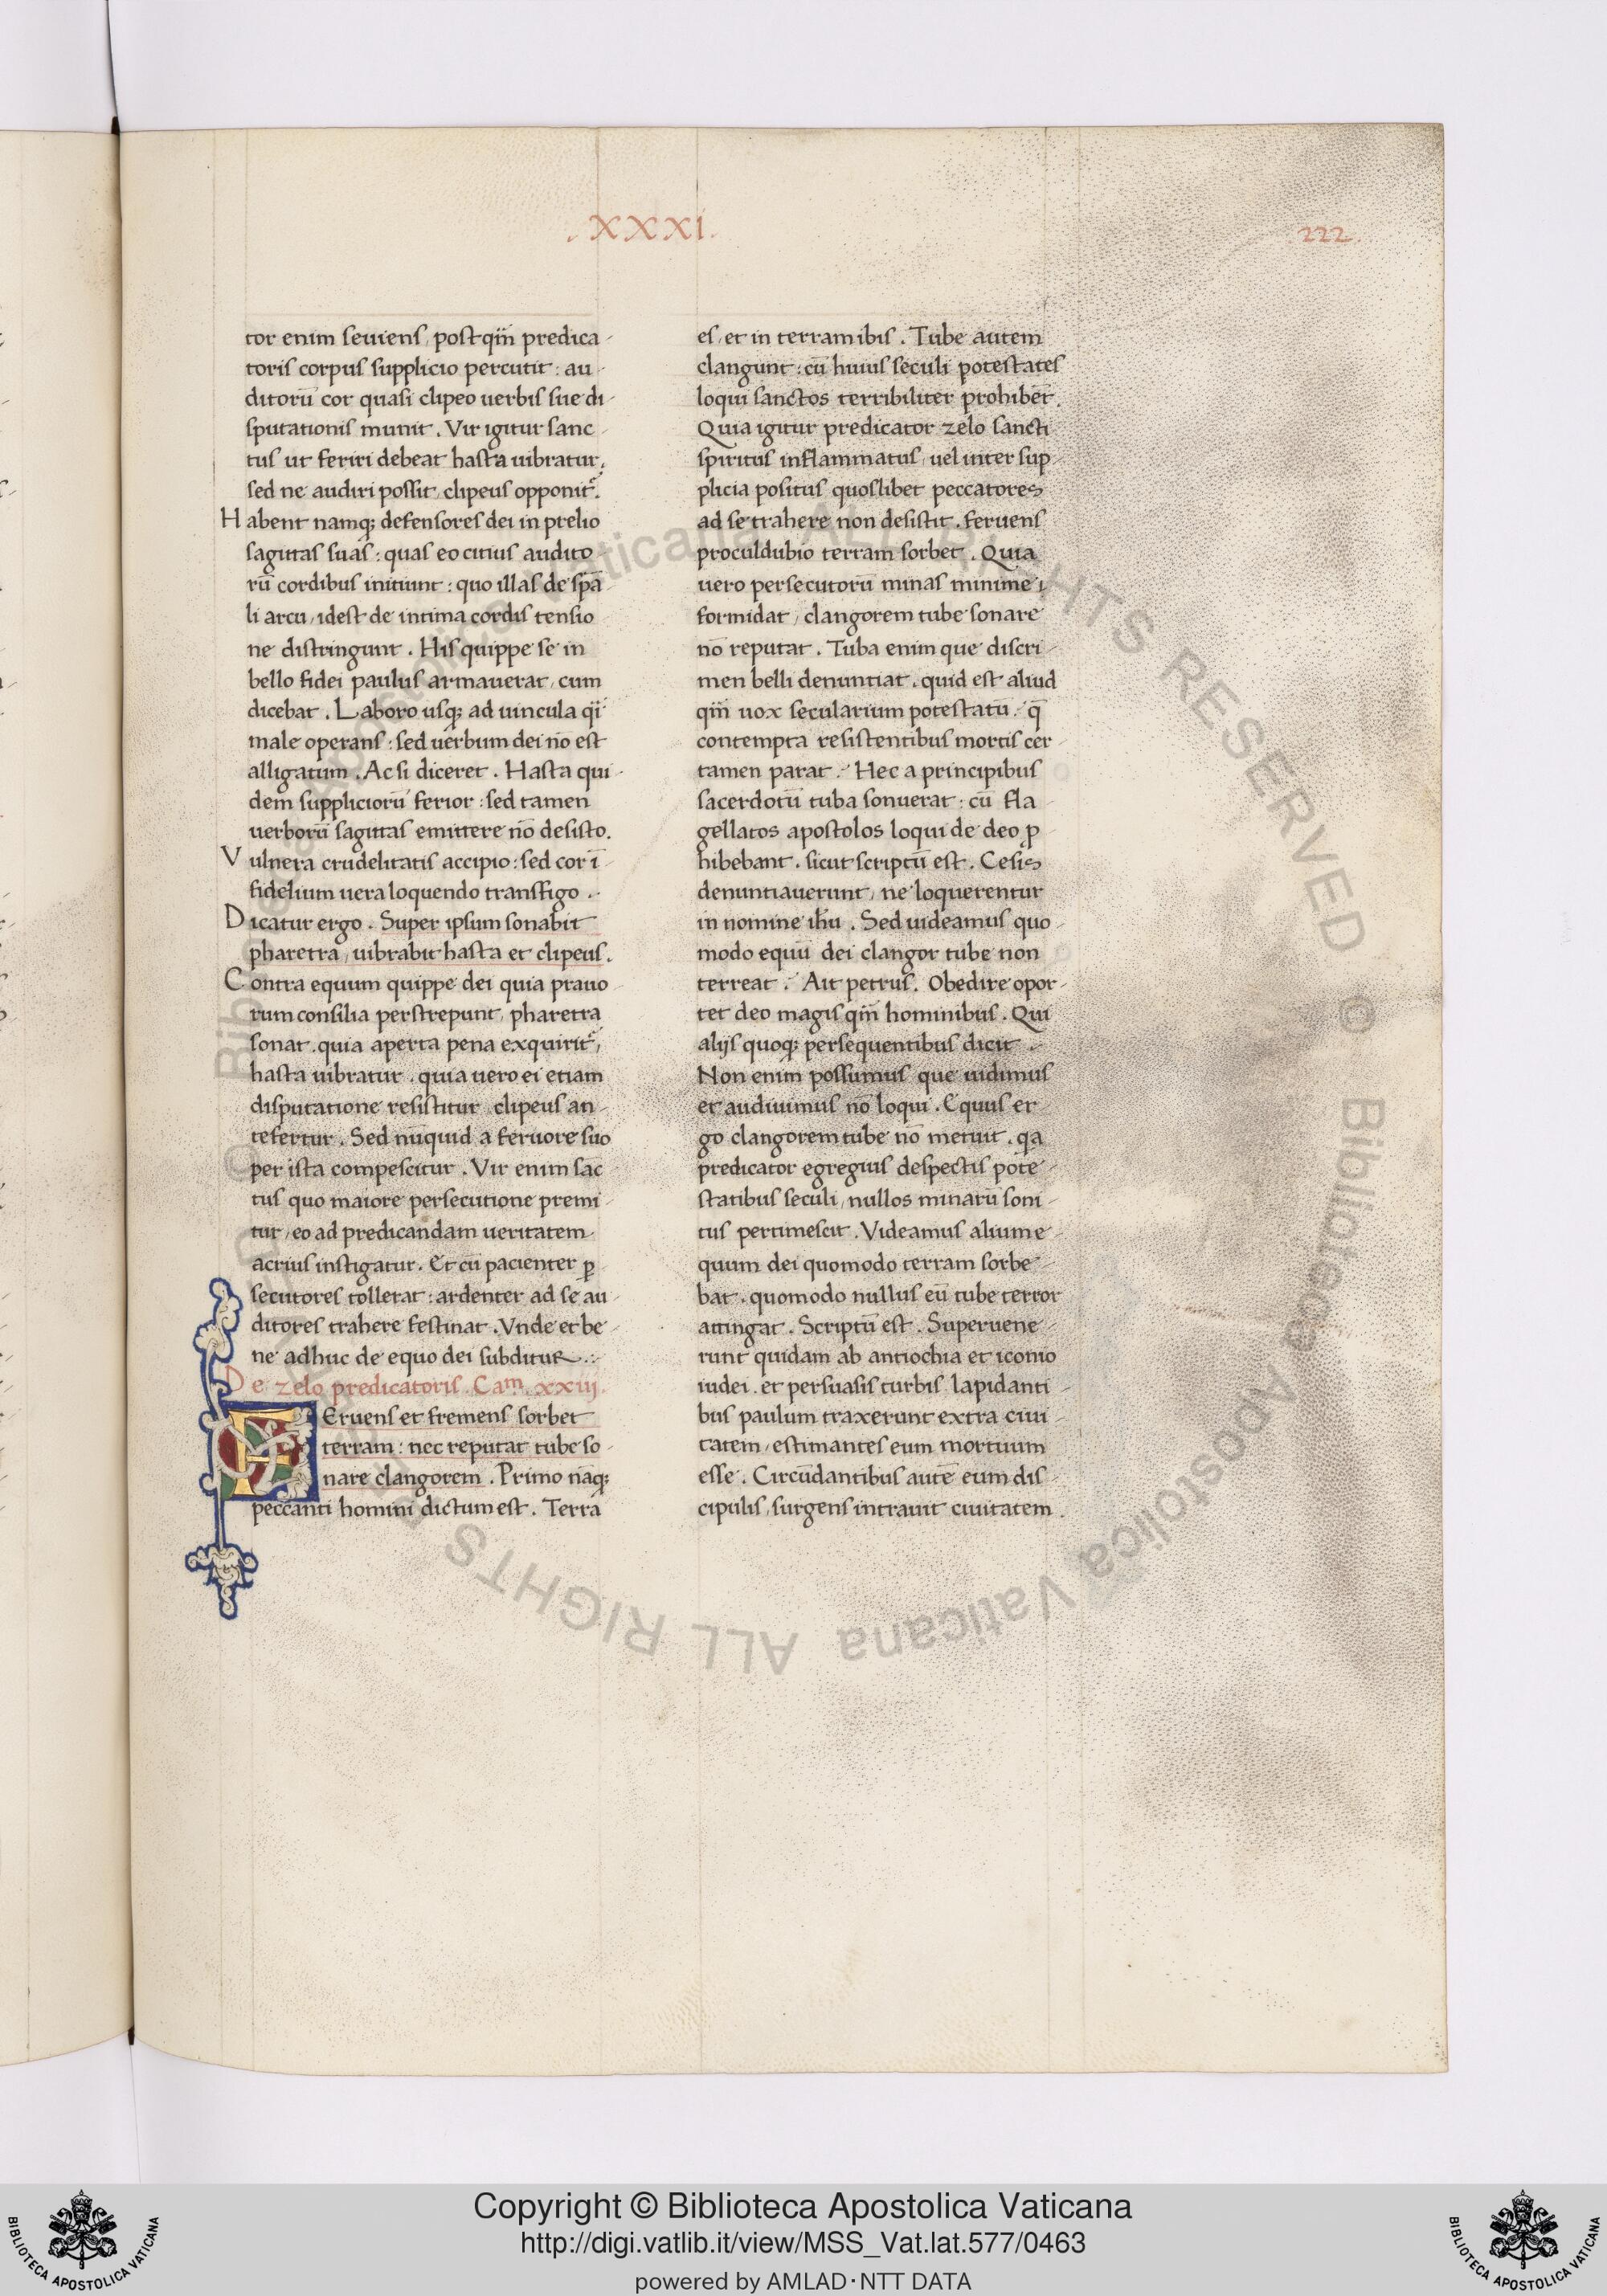 .XXXI.
222.
tor enim seuiens, postqm̄ predica-
toris corpus supplicio percutit: au-
ditorū cor quasi clipeo uerbis sue di-
sputationis munit. Vir igitur sanc-
tus ut feriri debeat hasta uibratur;
sed ne audiri possit, clipeus opponit̃.
Habent namq; defensores dei in prelio
sagittas suas: quas eo citius audito-
rū cordibus initiunt: quo illas de sp̄a-
li arcu, idest de intima cordis tensio-
ne distringunt. His quippe se in
bello fidei paulus armauerat, cum
dicebat. Laboro usq; ad uincula q̄i
male operans: sed uerbum dei nō est
alligatum. Ac si diceret. Hasta qui-
dem suppliciorū ferior: sed tamen
uerborū sagittas emittere nō desisto.
Vulnera crudelitatis accipio: sed cor ī-
fidelium uera loquendo transfigo.
Dicatur ergo. Super ipsum sonabit
pharetra, uibrabit hasta et clipeus.
Contra equum quippe dei quia prauo-
rum consilia perstrepunt, pharetra
sonat. quia aperta pena exquirit̃,
hasta uibratur. quia uero ei etiam
disputatione resistitur clipeus an-
tefertur. Sed nūquid a feruore suo
per ista compescitur. Vir enim sāc-
tus quo maiore persecutione premi-
tur, eo ad predicandam ueritatem
acrius instigatur. Et cū pacienter ꝑ-
secutores tollerat: ardenter ad se au-
ditores trahere festinat. Vnde et be-
ne adhuc de equo dei subditur.
De zelo predicatoris. Cam. xxiij.
FEruens et fremens sorbet
terram: nec reputat tube so-
nare clangorem. Primo nāq;
peccanti homini dictum est. Terra
es, et in terram ibis. Tube autem
clangunt: cū huius seculi potestates
loqui sanctos terribiliter prohibēt.
Quia igitur predicator zelo sancti
spiritus inflammatus, uel inter sup-
plicia positus quoslibet peccatores
ad se trahere non desistit. feruens
proculdubio terram sorbet. Quia
uero persecutorū minas minime
formidat, clangorem tube sonare
nō reputat. Tuba enim que discri-
men belli denuntiat, quid est aliud
qm̄ uox secularium potestatū. q̄
contempta resistentibus mortis cer-
tamen parat. Hec a principibus
sacerdotū tuba sonuerat: cū fla-
gellatos apostolos loqui de deo ꝓ-
hibebant. sicut scriptū est. Cesis
denuntiauerunt, ne loquerentur
in nomine ih̄u. Sed uideamus quo-
modo equū dei clangor tube non
terreat. Ait petrus. Obedire opor-
tet deo magis qm̄ hominibus. Qui
alijs quoq; persequentibus dicit.
Non enim possumus que uidimus
et audiuimus nō loqui. Equus er-
go clangorem tube nō metuit. q̄a
predicator egregius despectis pote-
statibus seculi, nullos minarū soni-
tus pertimescit. Videamus alium e-
quum dei quomodo terram sorbe-
bat. quomodo nullus eū tube terror
attingat. Scriptū est. Superuene-
runt quidam ab antiochia et iconio
iudei. et persuasis turbis lapidanti-
bus paulum traxerunt extra ciui-
tatem, estimantes eum mortuum
esse. Circūdantibus autē eum dis-
cipulis, surgens intrauit ciuitatem.
© Biblioteca Apostolica Vaticana ALL RIGHTS RESERVED © Biblioteca Apostolica Vaticana ALL RIGHTS
BIBLIOTECA APOSTOLICA VATICANA
Copyright © Biblioteca Apostolica Vaticana
http://digi.vatlib.it/view/MSS_Vat.lat.577/0463
powered by AMLAD·NTT DATA
BIBLIOTECA APOSTOLICA VATICANA